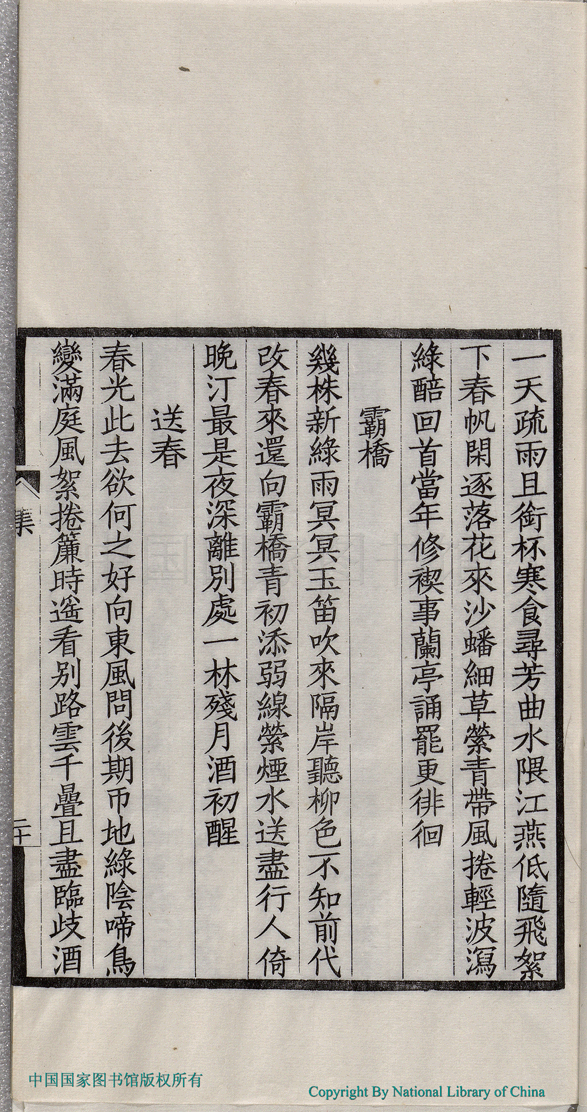 一天疏雨且銜杯寒食尋芳曲水隈江燕低隨飛絮
下春帆閑逐落花來沙蟠細草縈青帶風捲輕波瀉
綠醅回首當年修禊事蘭亭誦罷更徘徊
霸橋
幾株新綠雨冥冥玉笛吹來隔岸聽柳色不知前代
改春來還向霸橋青初添弱線縈煙水送盡行人倚
晚汀最是夜深離別處一林殘月酒初醒
送春
春光此去欲何之好向東風問後期帀地綠陰啼鳥
變滿庭風絮捲簾時遙看別路雲千疊且盡臨歧酒
集
二十
中国国家图书馆版权所有
Copyright By National Library of China